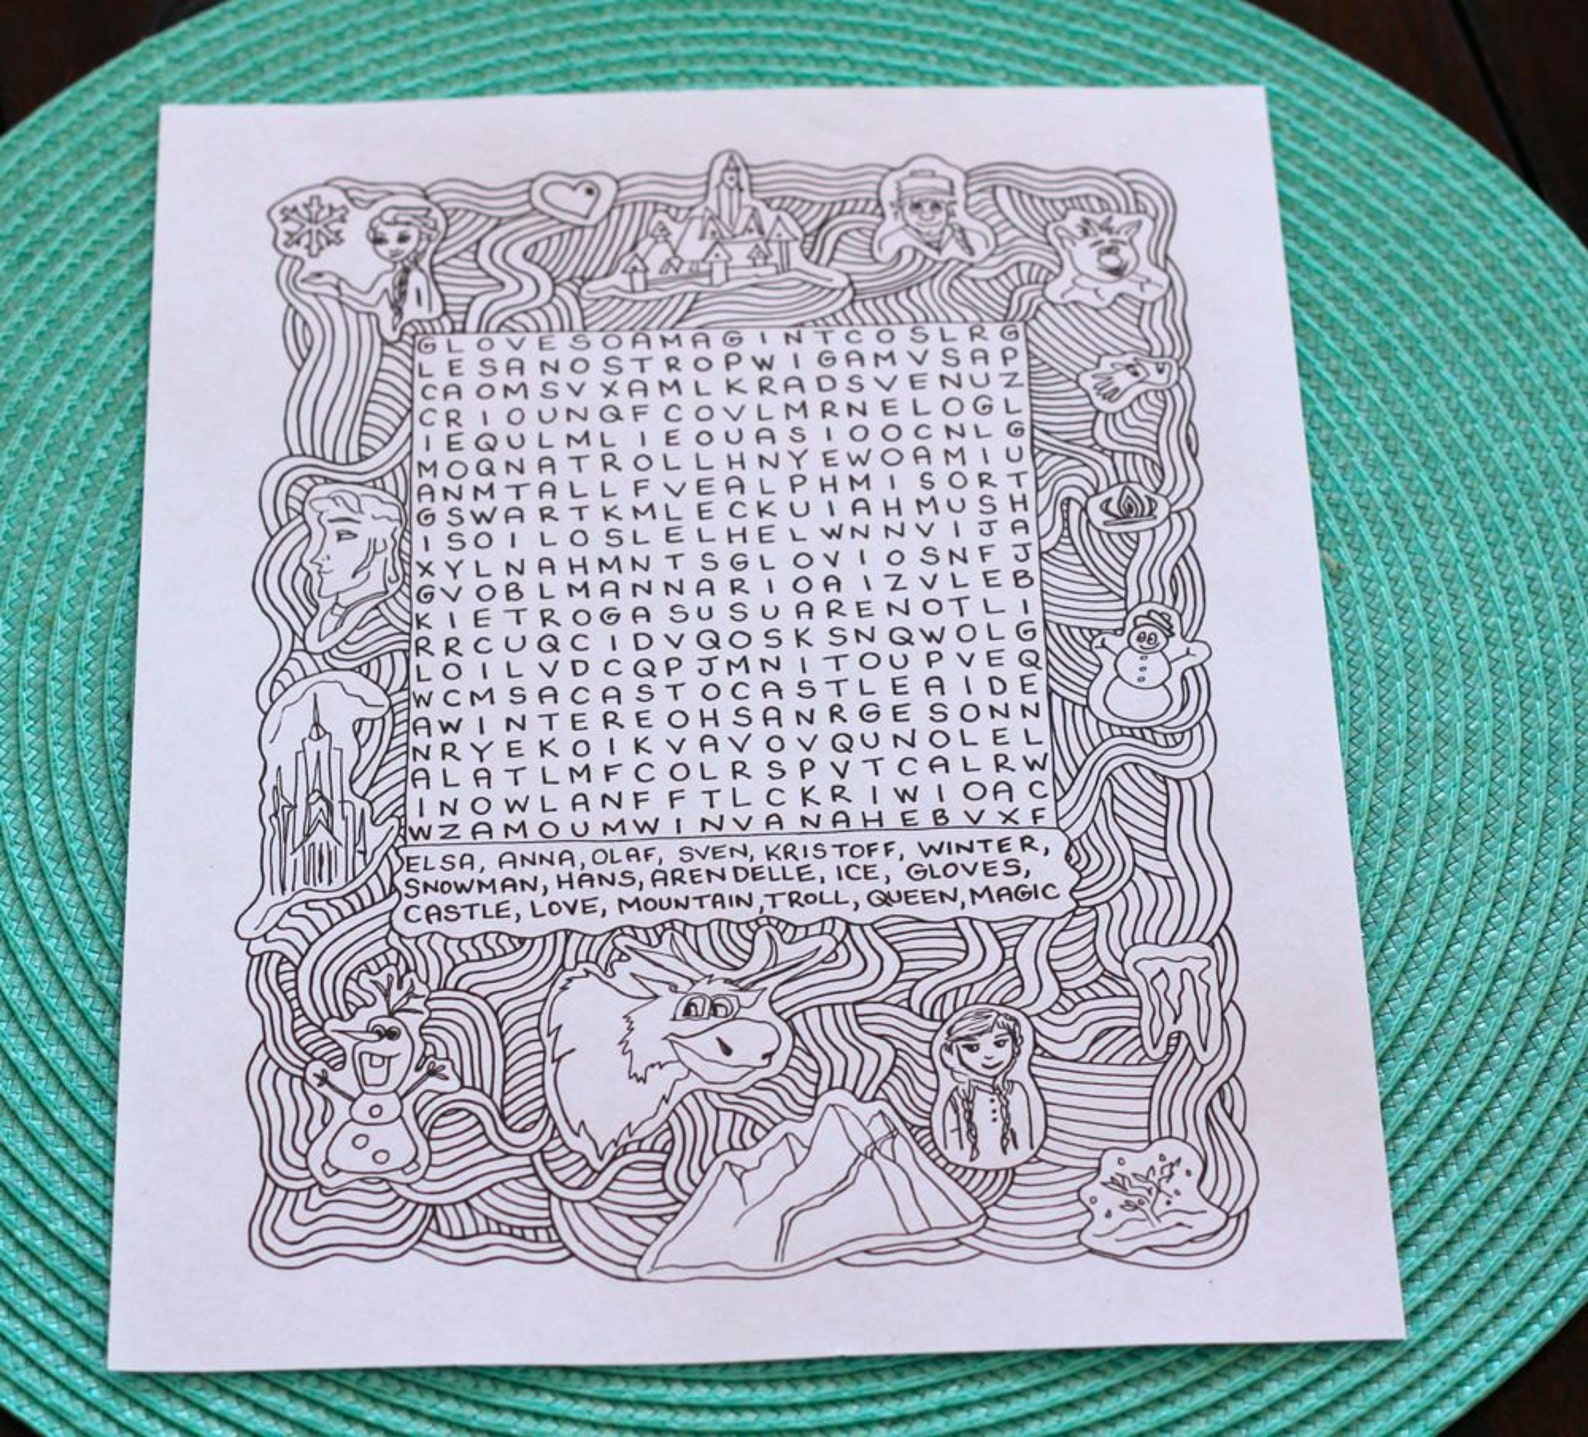 GLOVESOAMAGINTCOSLRG
LESANOSTROPWIGAMVSAP
CAOMSVXAMLKRADSVENUZ
CRIOUNQFCOVLMRNELOGL
IEQULMLIEOUASIOOCNLG
MOQNATROLLHNYEWOAMIU
ANMTALLFVEALPHMISORT
GSWARTKMLECKUIAHMUSH
ISOILOSLELHELWNNVIJA
XYLNAHMNTSGLOVIOSNFJ
GVOBLMANNARIOAIZVLEB
KIETROGASUSUARENOTLI
RRCUQCIDVQOSKSNQWOLG
LOILVDCQPJMNITOUPVEQ
WCMSACASTOCASTLEAIDE
AWINTEREOHSANRGESONN
NRYEKOIKVAVOVQUNOLEL
ALATLMFCOLRSPVTCALRW
INOWLANFFTLCKRIWIOAC
WZAMOUMWINVANAHEBVXF
ELSA, ANNA, OLAF, SVEN, KRISTOFF, WINTER,
SNOWMAN, HANS, ARENDELLE, ICE, GLOVES,
CASTLE, LOVE, MOUNTAIN, TROLL, QUEEN, MAGIC